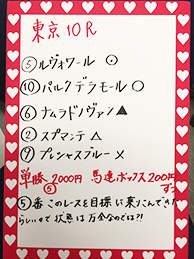 東京10R
⑤ルヴォワール ⊙
⑩パルクデラモール ○
⑥ナムラドノヴァン ▲
②スプマンテ △
⑦プレシャスブルー ×
単勝2000円 馬連ボックス200円
⑤ ずつ
⑤番このレースを目標に乗りこんできた
らしいので状態は万全なのでは?!